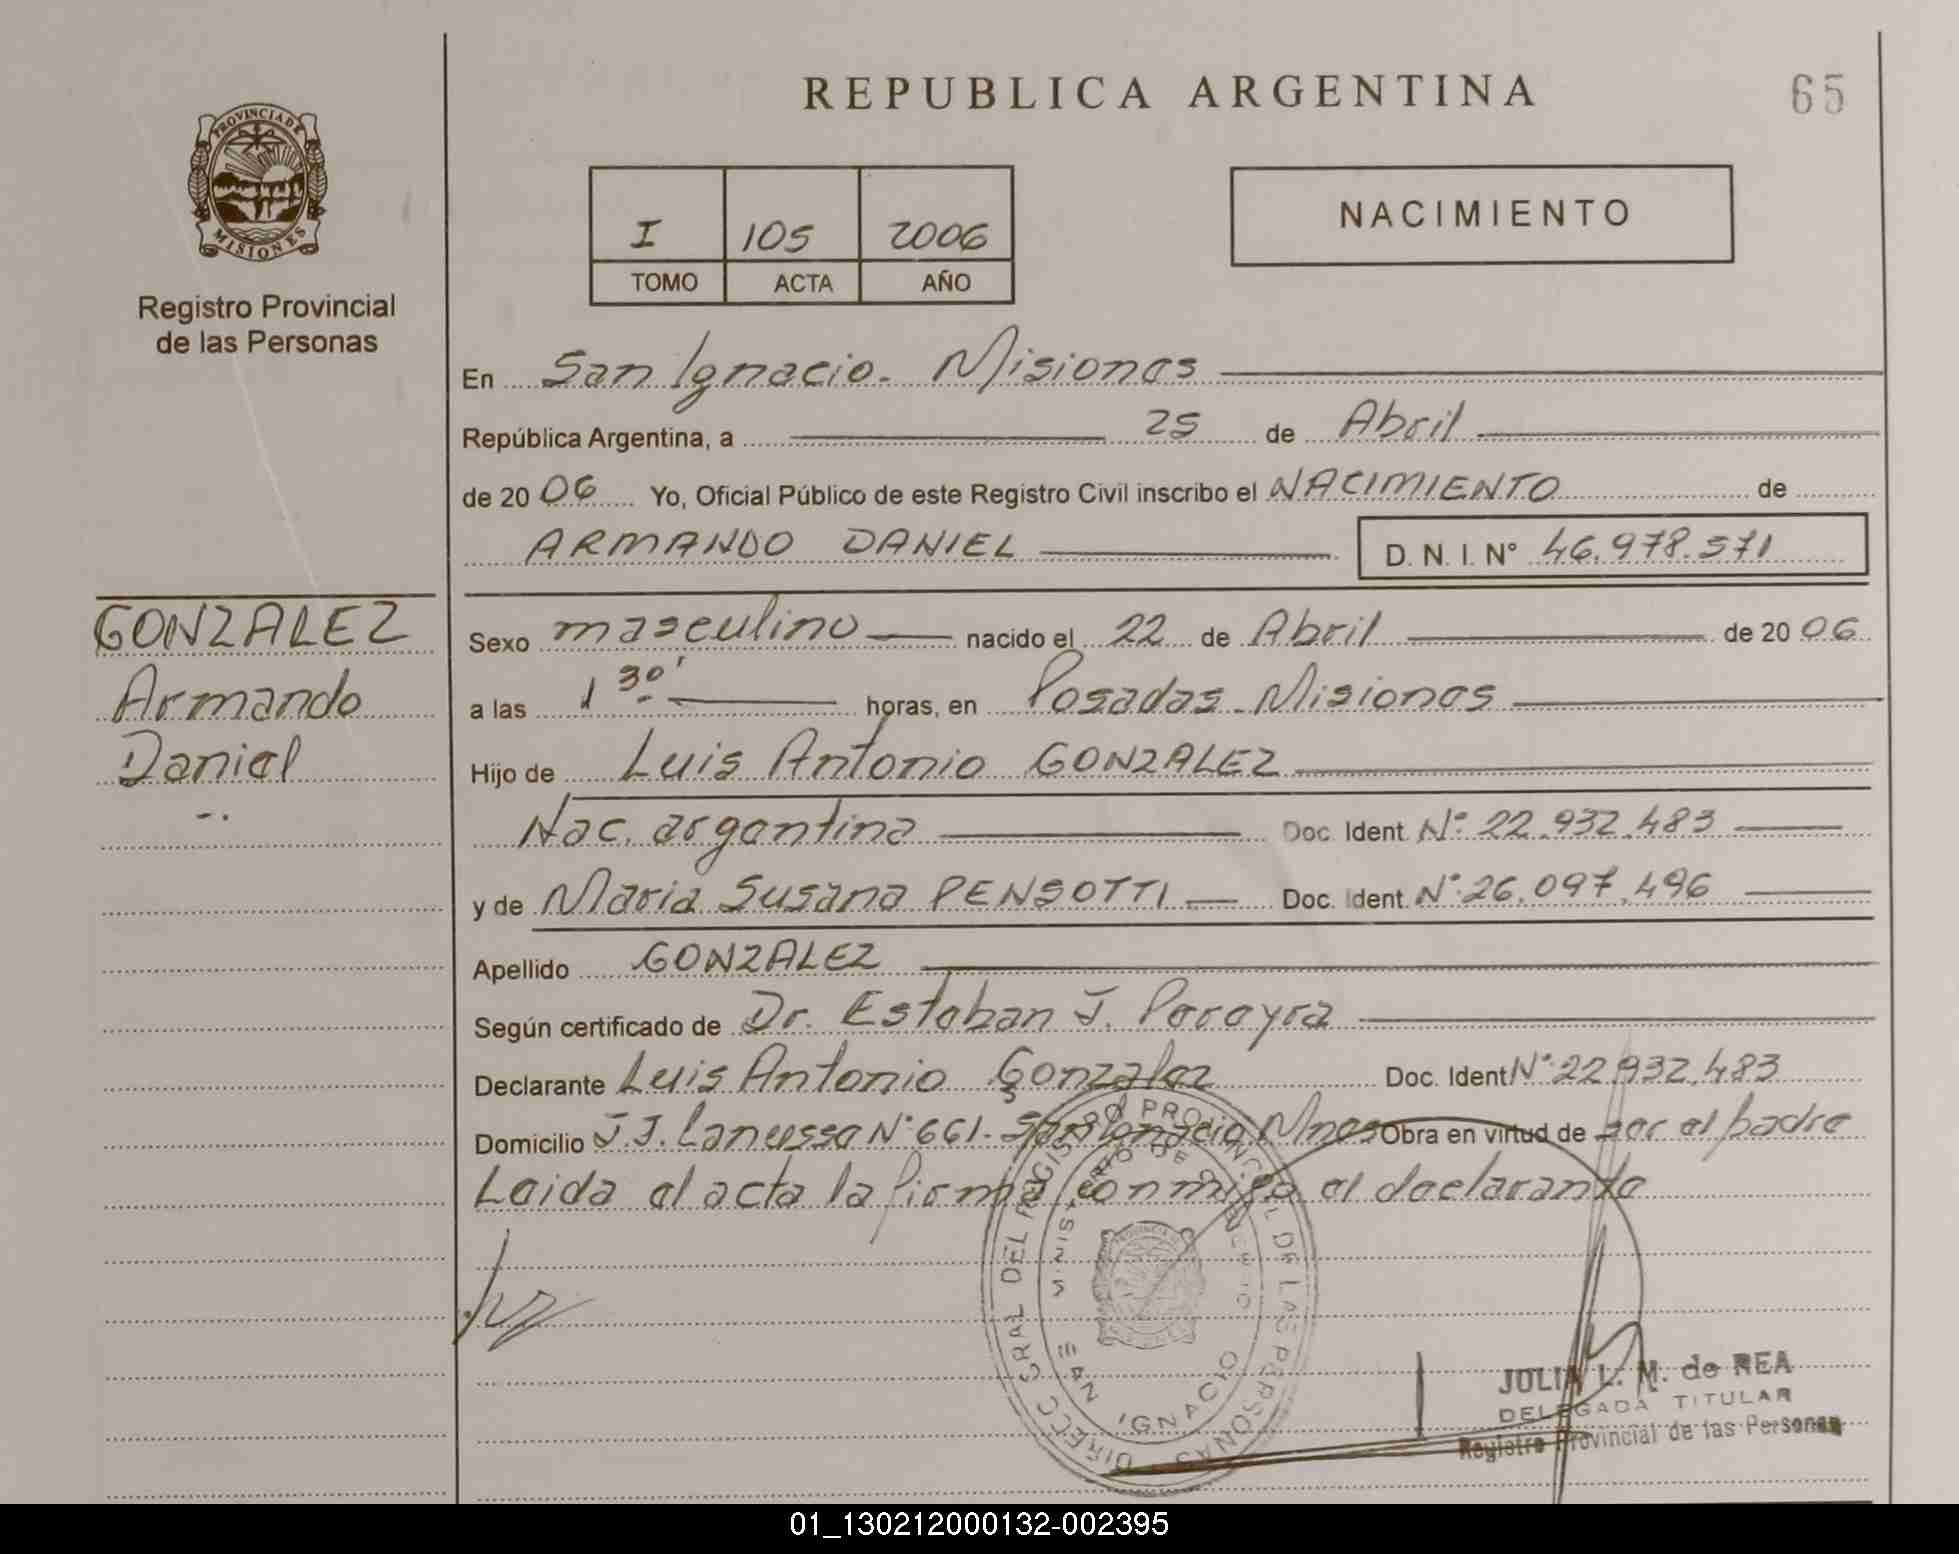 REPUBLICA ARGENTINA
65
PROVINCIA DE
MISIONES
Registro Provincial
de las Personas
I 105 2006
TOMO ACTA AÑO
NACIMIENTO
En San Ignacio. Misiones
República Argentina, a 25 de Abril
de 2006 Yo, Oficial Público de este Registro Civil inscribo el NACIMIENTO de
ARMANDO DANIEL D. N. I. Nº 46.978.571
GONZALEZ
Armando
Daniel
Sexo masculino nacido el 22 de Abril de 2006
a las 1 30' horas, en Posadas - Misiones
Hijo de Luis Antonio GONZALEZ
Nac. argentina Doc. Ident. Nº 22.932.483
y de Maria Susana PENSOTTI Doc. Ident. Nº 26.097.496
Apellido GONZALEZ
Según certificado de Dr. Esteban J. Pereyra
Declarante Luis Antonio Gonzalez Doc. Ident Nº 22.932.483
Domicilio J.J. Lanusse Nº 661. San Ignacio Mnes Obra en virtud de ser el padre
Leida el acta la firma conmigo el declarante
DIRECC GRAL DEL REGISTRO PROVINCIAL DE LAS PERSONAS
SAN IGNACIO
JULIA L. M. de REA
DELEGADA TITULAR
Registro Provincial de las Personas
01_130212000132-002395